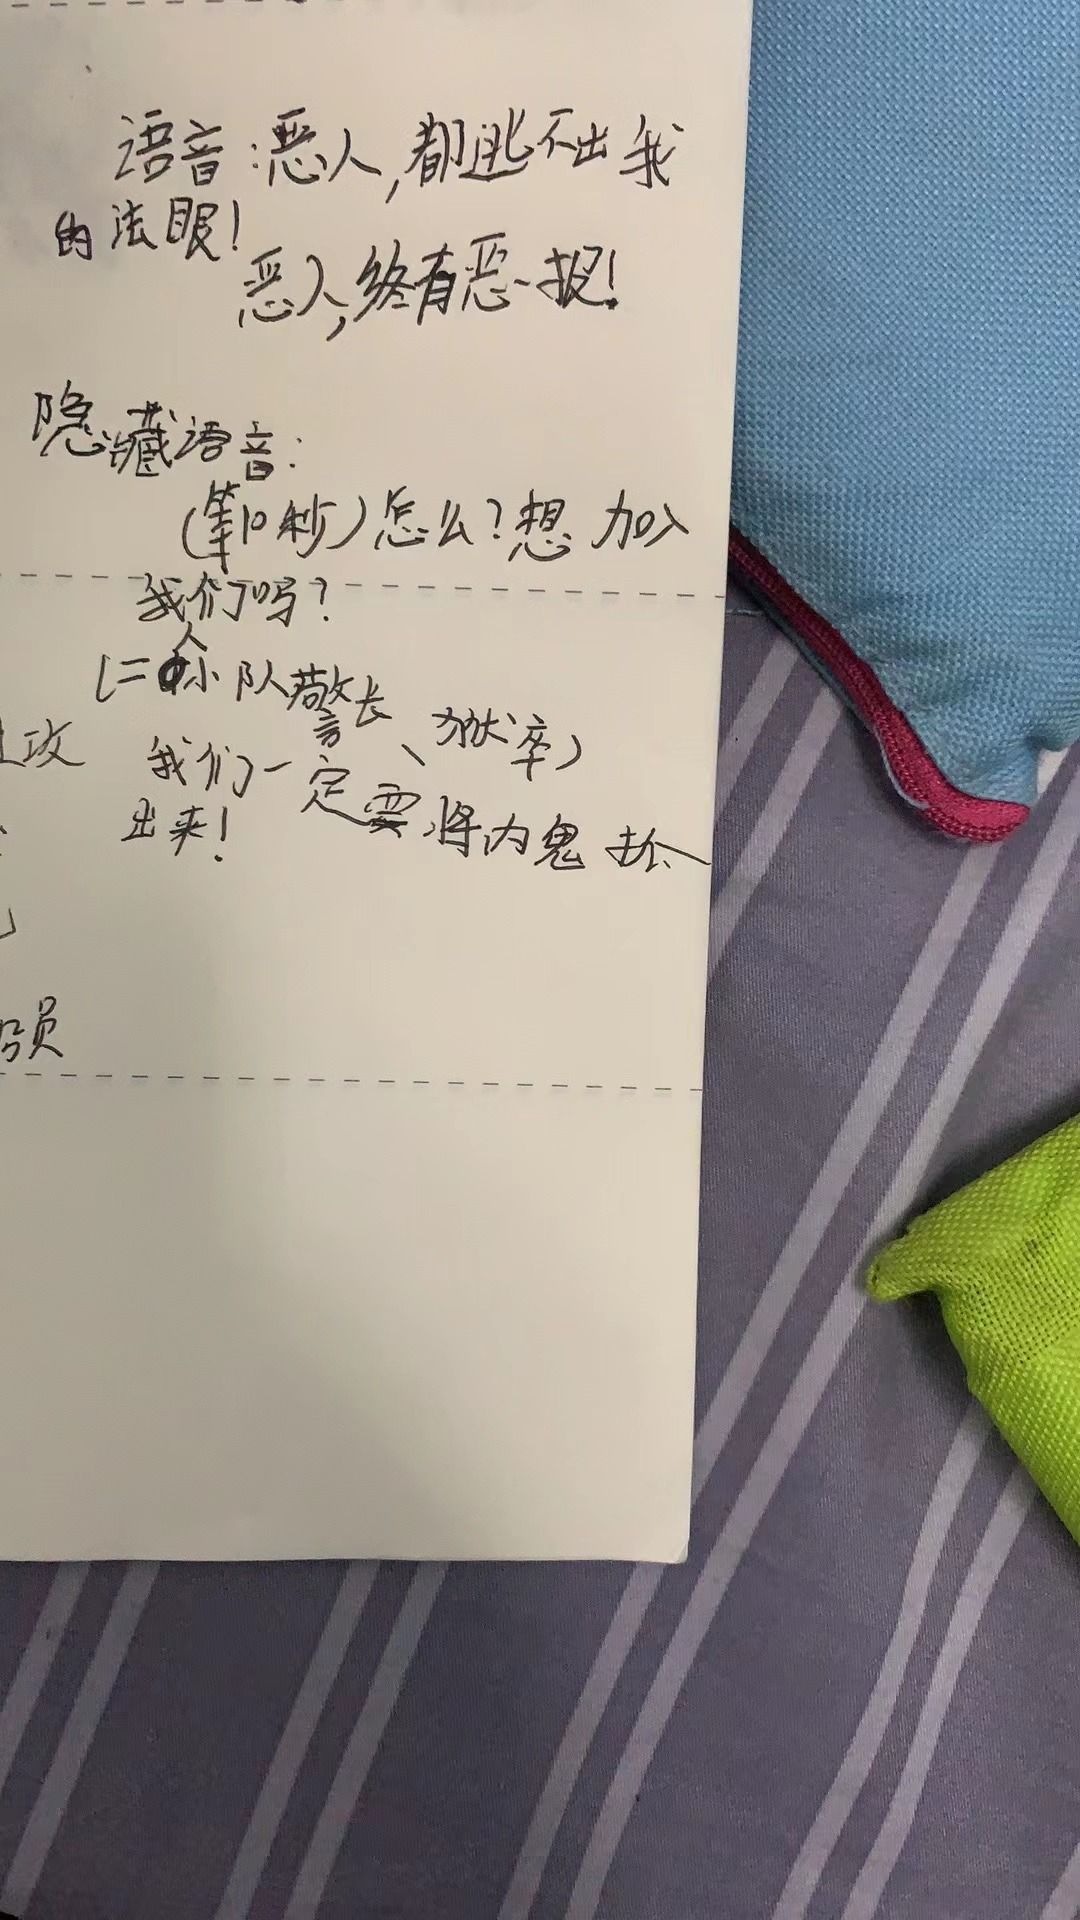 语音:恶人,都逃不出我
的法眼!
恶人,终有恶报!
隐藏语音:
(等10秒)怎么?想加入
我们吗?
(二人小队警长、狱卒)
攻
我们一定要将内鬼抓
出来!
员